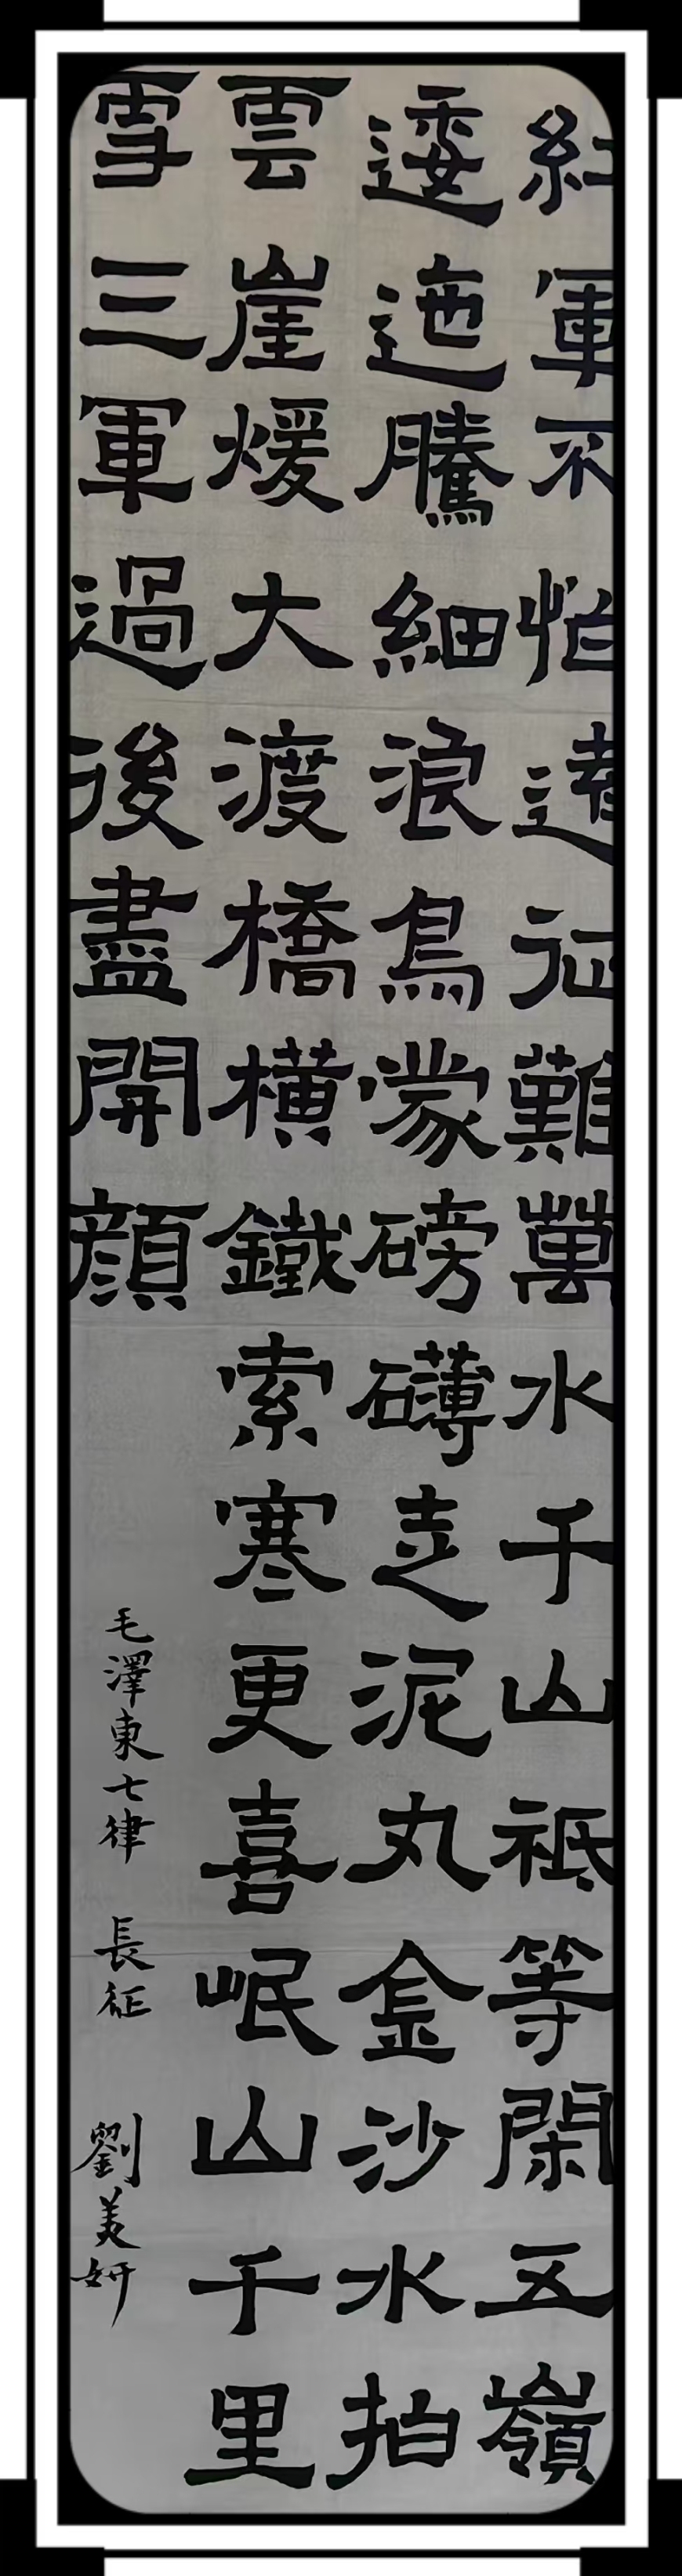 紅軍不怕遠征難萬水千山祗等閑五嶺
逶迤騰細浪烏蒙磅礴走泥丸金沙水拍
雲崖煖大渡橋橫鐵索寒更喜岷山千里
雪三軍過後盡開顏
毛澤東七律 長征 劉美妍